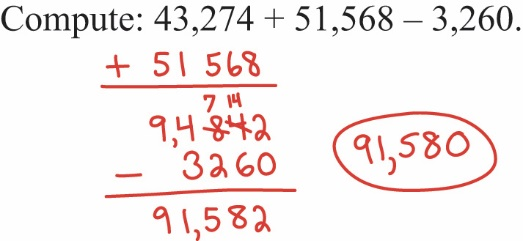 Compute: 43,274 + 51,568 – 3,260.
+ 51 568
7 14
9,4 842
– 3260
91,580
91,582